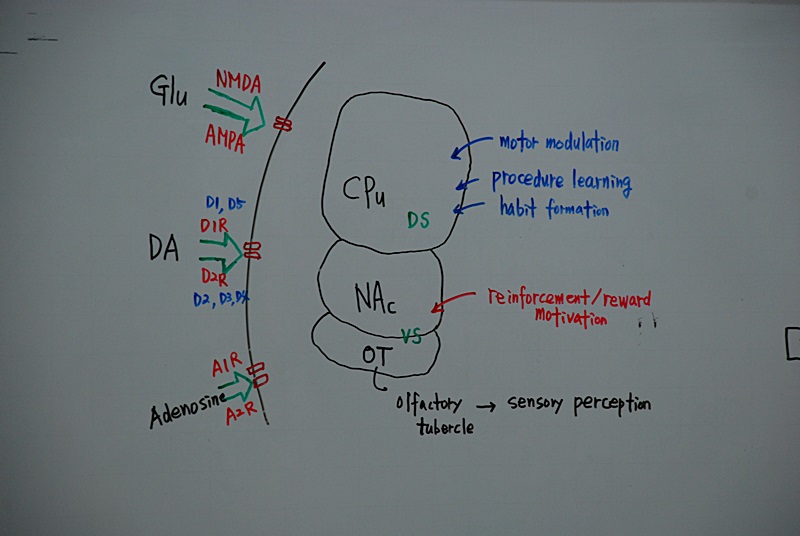 Glu
NMDA
AMPA
D1, D5
DA
D1R
D2R
D2, D3, D4
A1R
Adenosine
A2R
CPu
DS
motor modulation
procedure learning
habit formation
NAc
VS
reinforcement/reward
motivation
OT
olfactory → sensory perception
tubercle